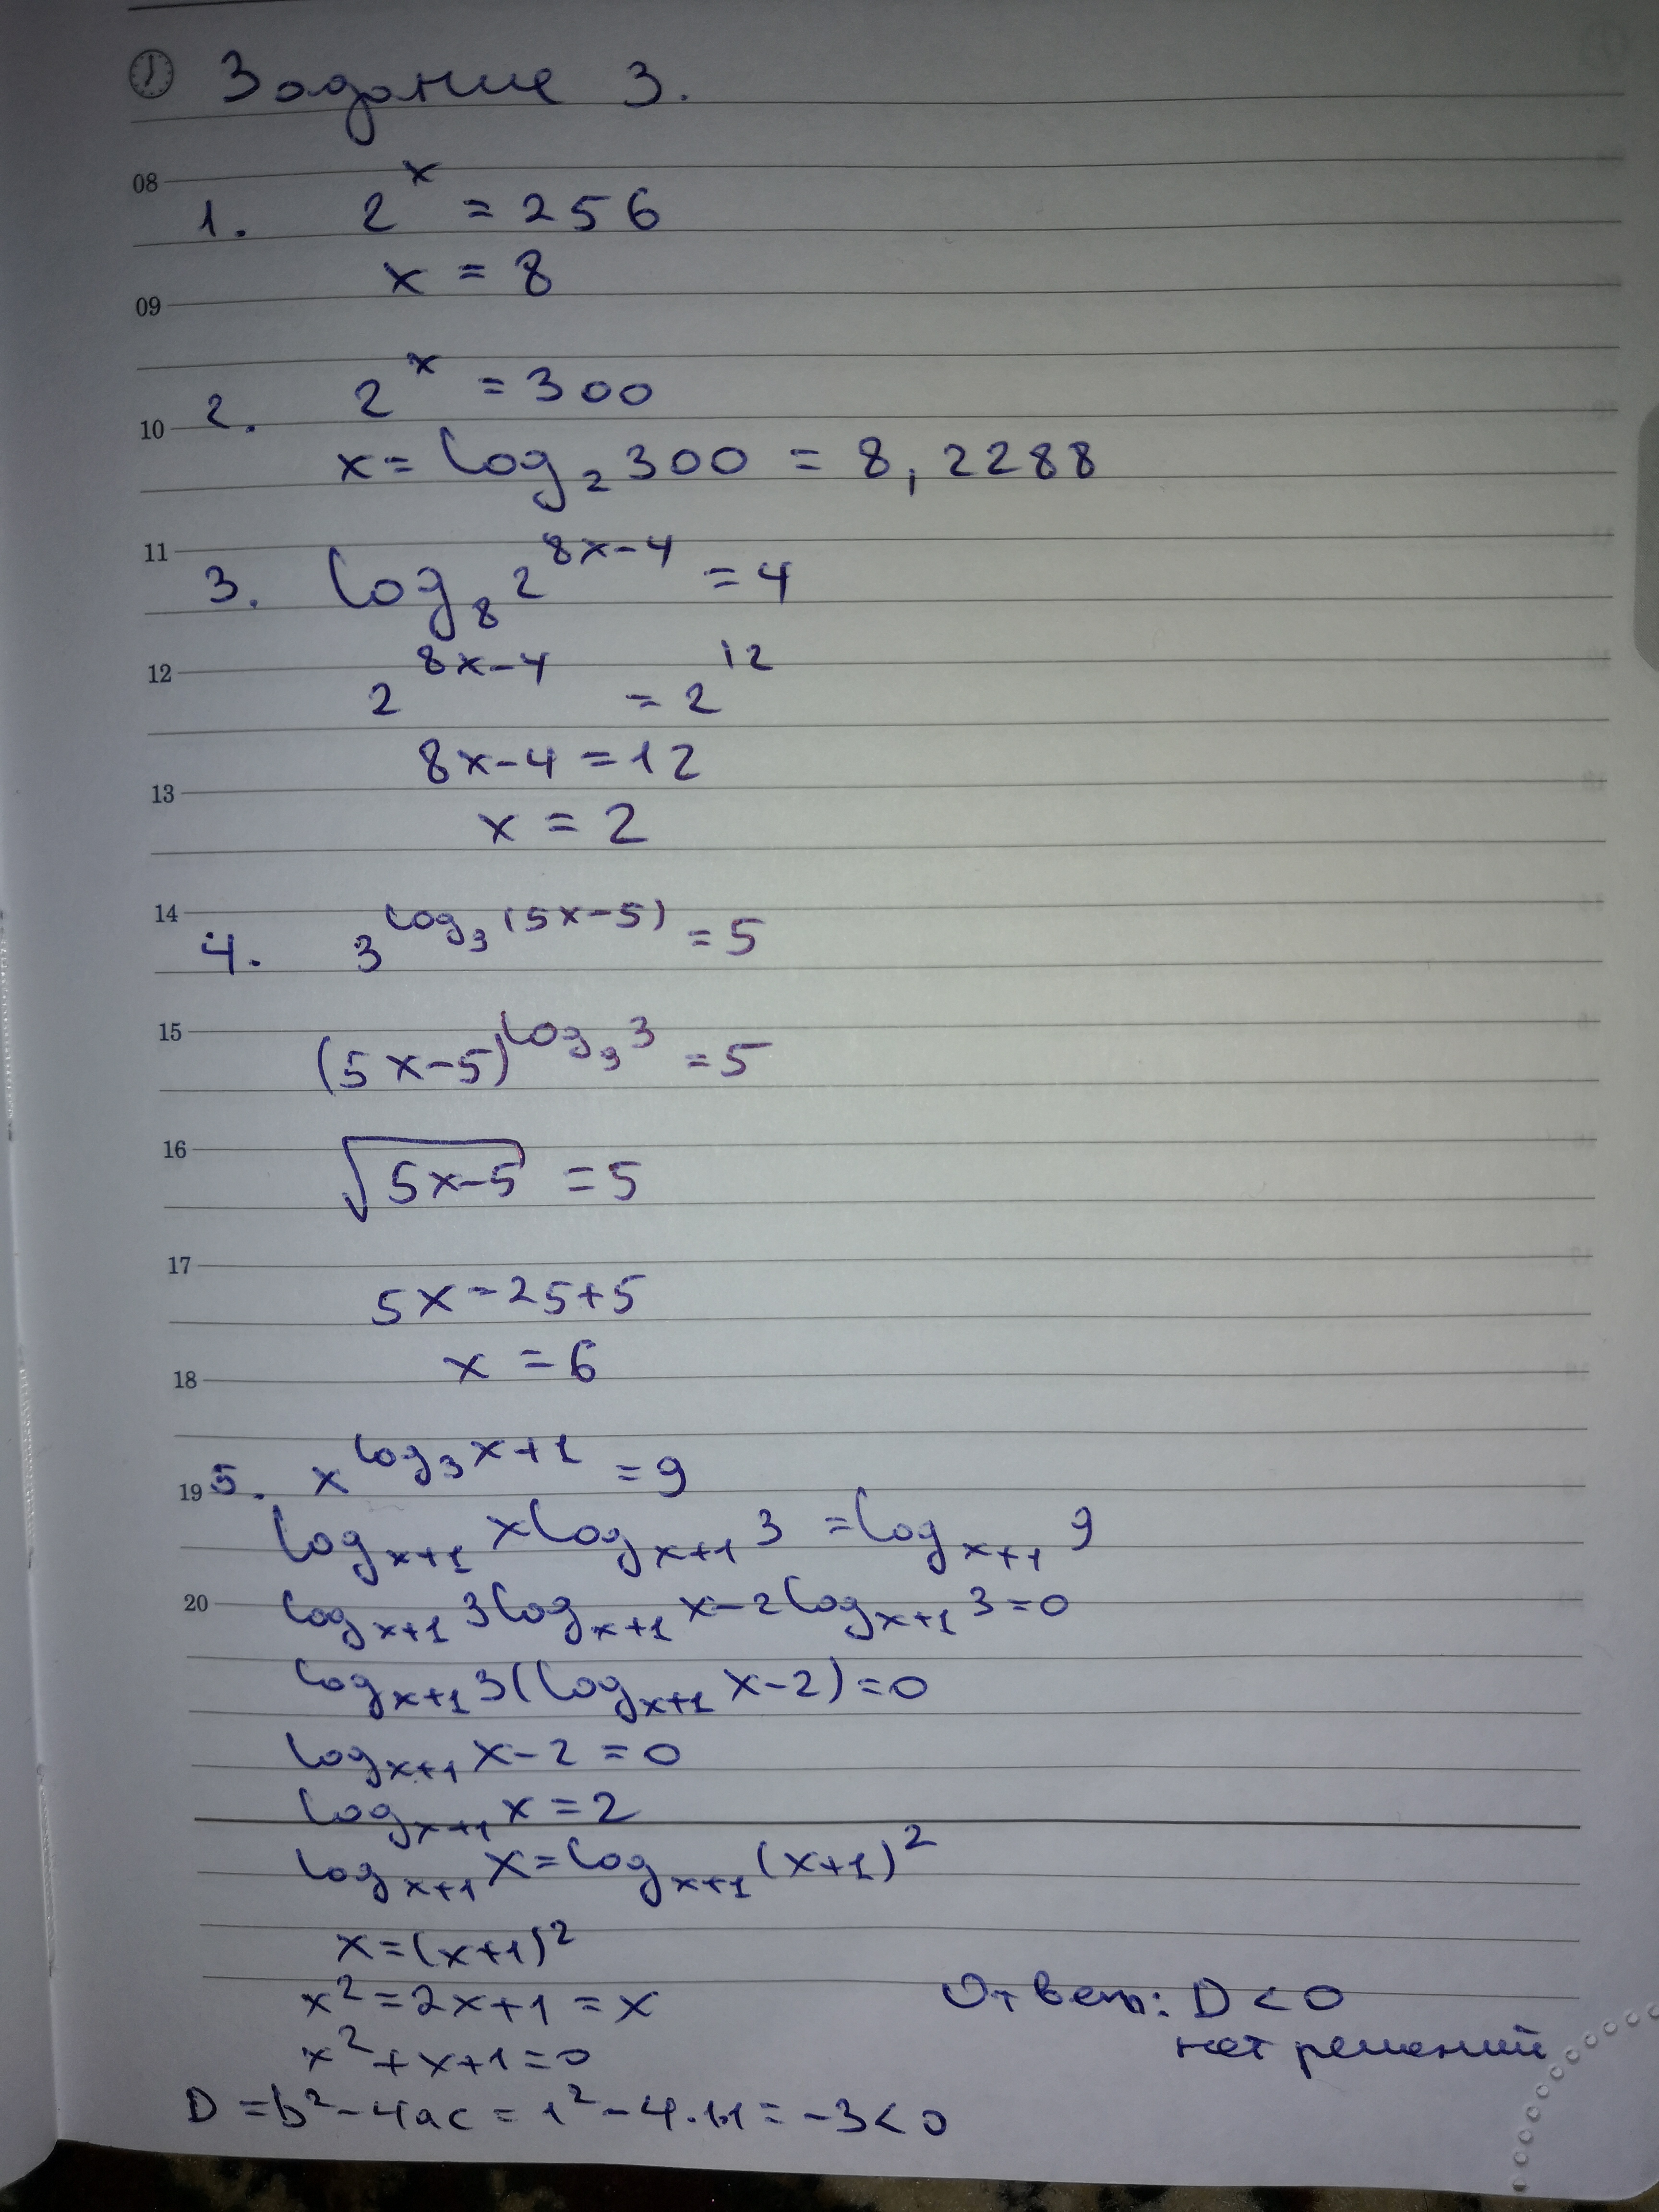 Задание 3.
08
1. 2^x = 256
x = 8
09
2. 2^x = 300
10
x = log₂ 300 = 8,2288
11
3. log₈ 2^(8x-4) = 4
12
2^(8x-4) = 2^12
8x-4 = 12
13
x = 2
14
4. 3^(log₃(5x-5)) = 5
15
(5x-5)^(log₃ 3) = 5
16
√(5x-5) = 5
17
5x = 25+5
x = 6
18
19
5. x^(log₃ x+1) = 9
log_(x+1) x log_(x+1) 3 = log_(x+1) 9
20
log_(x+1) 3 log_(x+1) x - 2 log_(x+1) 3 = 0
log_(x+1) 3 (log_(x+1) x - 2) = 0
log_(x+1) x - 2 = 0
log_(x+1) x = 2
log_(x+1) x = log_(x+1) (x+1)²
x = (x+1)²
x² = 2x+1 = x
x² + x+1 = 0
D = b² - 4ac = 1² - 4·1·1 = -3 < 0
Ответ: D < 0
нет решений